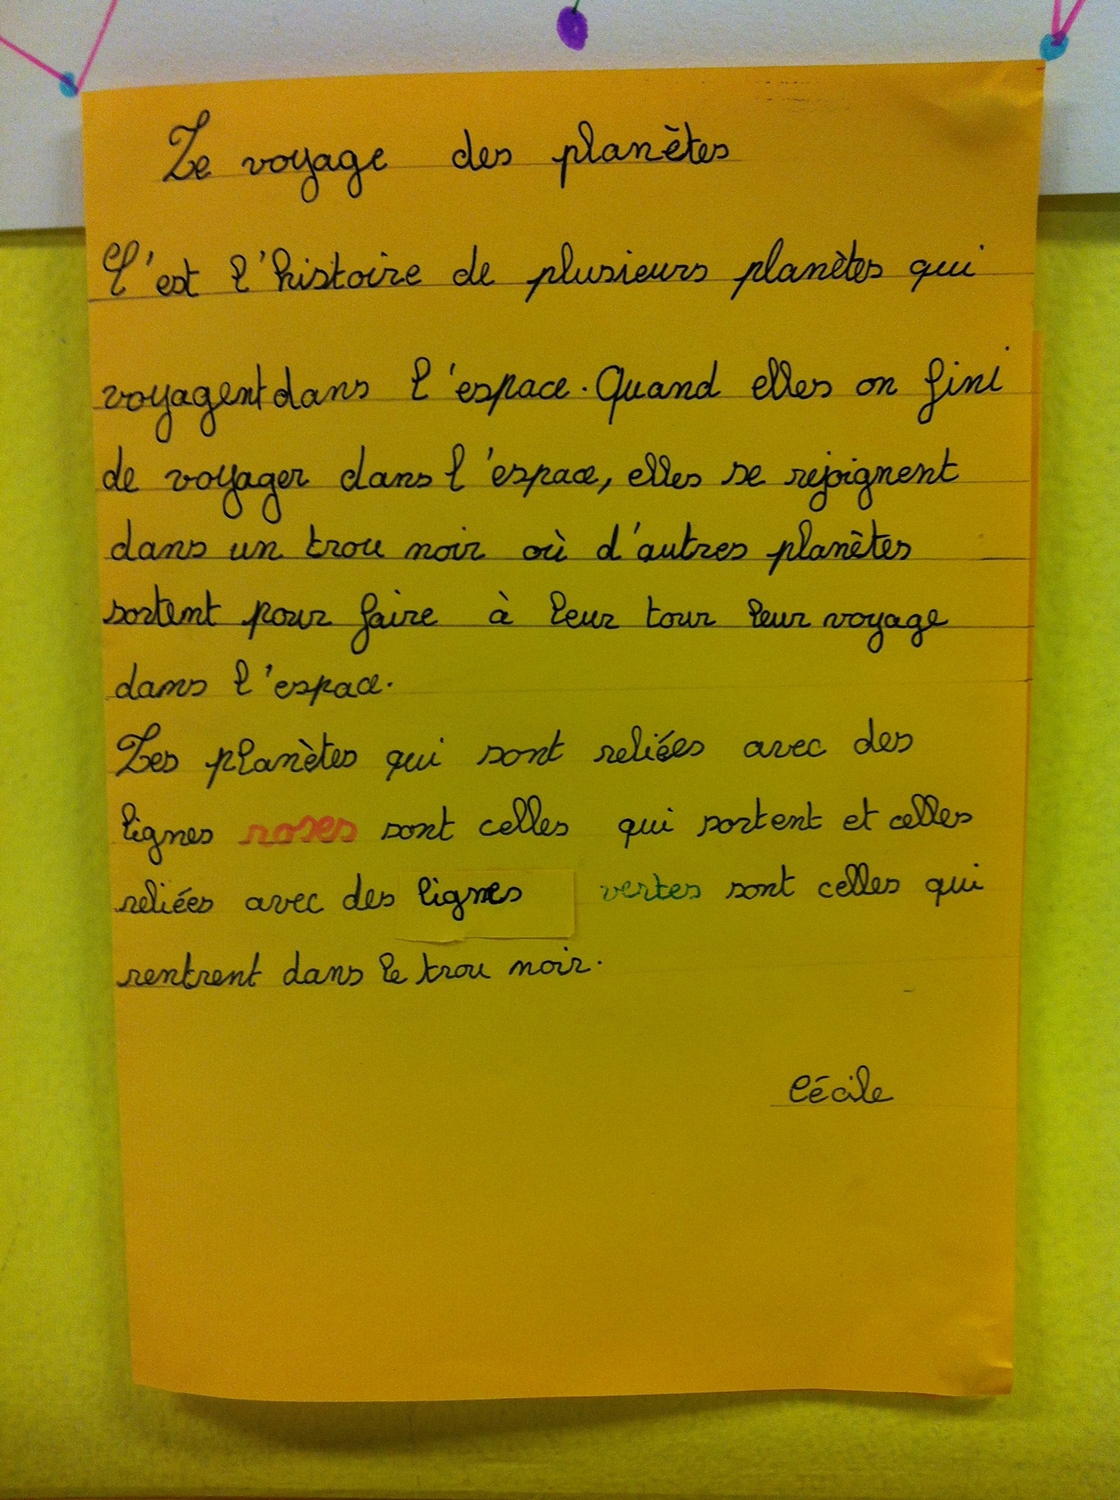 Le voyage des planètes
C'est l'histoire de plusieurs planètes qui
voyagent dans l'espace. Quand elles on fini
de voyager dans l'espace, elles se rejoignent
dans un trou noir où d'autres planètes
sortent pour faire à leur tour leur voyage
dans l'espace.
Les planètes qui sont reliées avec des
lignes roses sont celles qui sortent et celles
reliées avec des lignes vertes sont celles qui
rentrent dans le trou noir.
Cécile